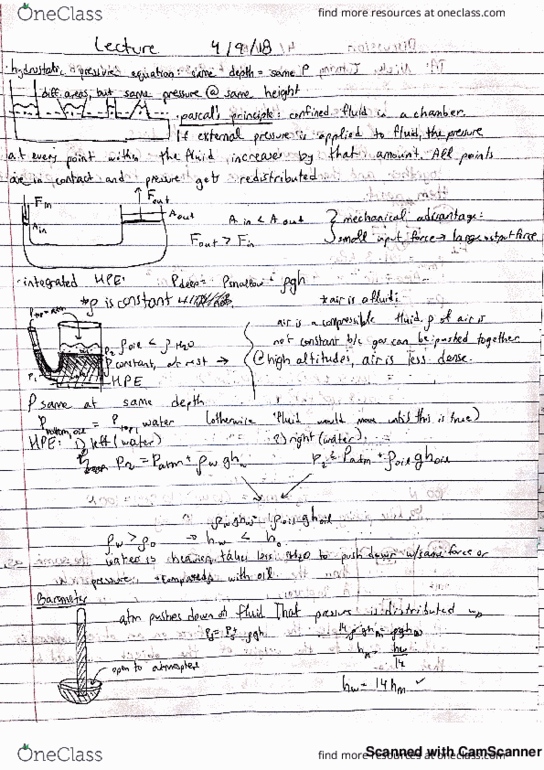 OneClass
find more resources at oneclass.com
Lecture 4/9/18
· hydrostatic pressure equation: same depth = same P
diff areas, but same pressure @ same height
· pascal's principle: confined fluid in a chamber.
If external pressure is applied to fluid, the pressure
at every point within the fluid increases by that amount. All points
are in contact and pressure gets redistributed
Fin
Fout
Ain
Aout
A in < A out
Fout > Fin
mechanical advantage:
small input force → large output force
· integrated HPE: Pdeep = Pshallow + ρgh
*ρ is constant
*air is a fluid:
air is a compressible fluid, ρ of air is
not constant b/c gas can be pushed together
@ high altitudes, air is less dense.
ρoil < ρH2O
P constant, at rest →
HPE
P same at same depth
Pbottom, oil = Ptop, water (otherwise fluid would move until this is true)
HPE: 1) left (water) 2) right (water)
P2 = Patm + ρwghw
P2 = Patm + ρoilghoil
ρwghw = ρoilghoil
ρw > ρo → hw < ho
water is heavier, takes less H2O to push down w/same force or
pressure *compared with oil
Barometer
atm pushes down of fluid That pressure is distributed
open to atmosphere
hw = 14hm ✓
OneClass
find more resources at oneclass.com
Scanned with CamScanner